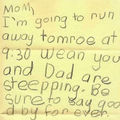 Mom,
I'm going to run
away tomroe at
9:30 Wean you
and Dad are
sleepping. Be
sure to say good
dby for ever.